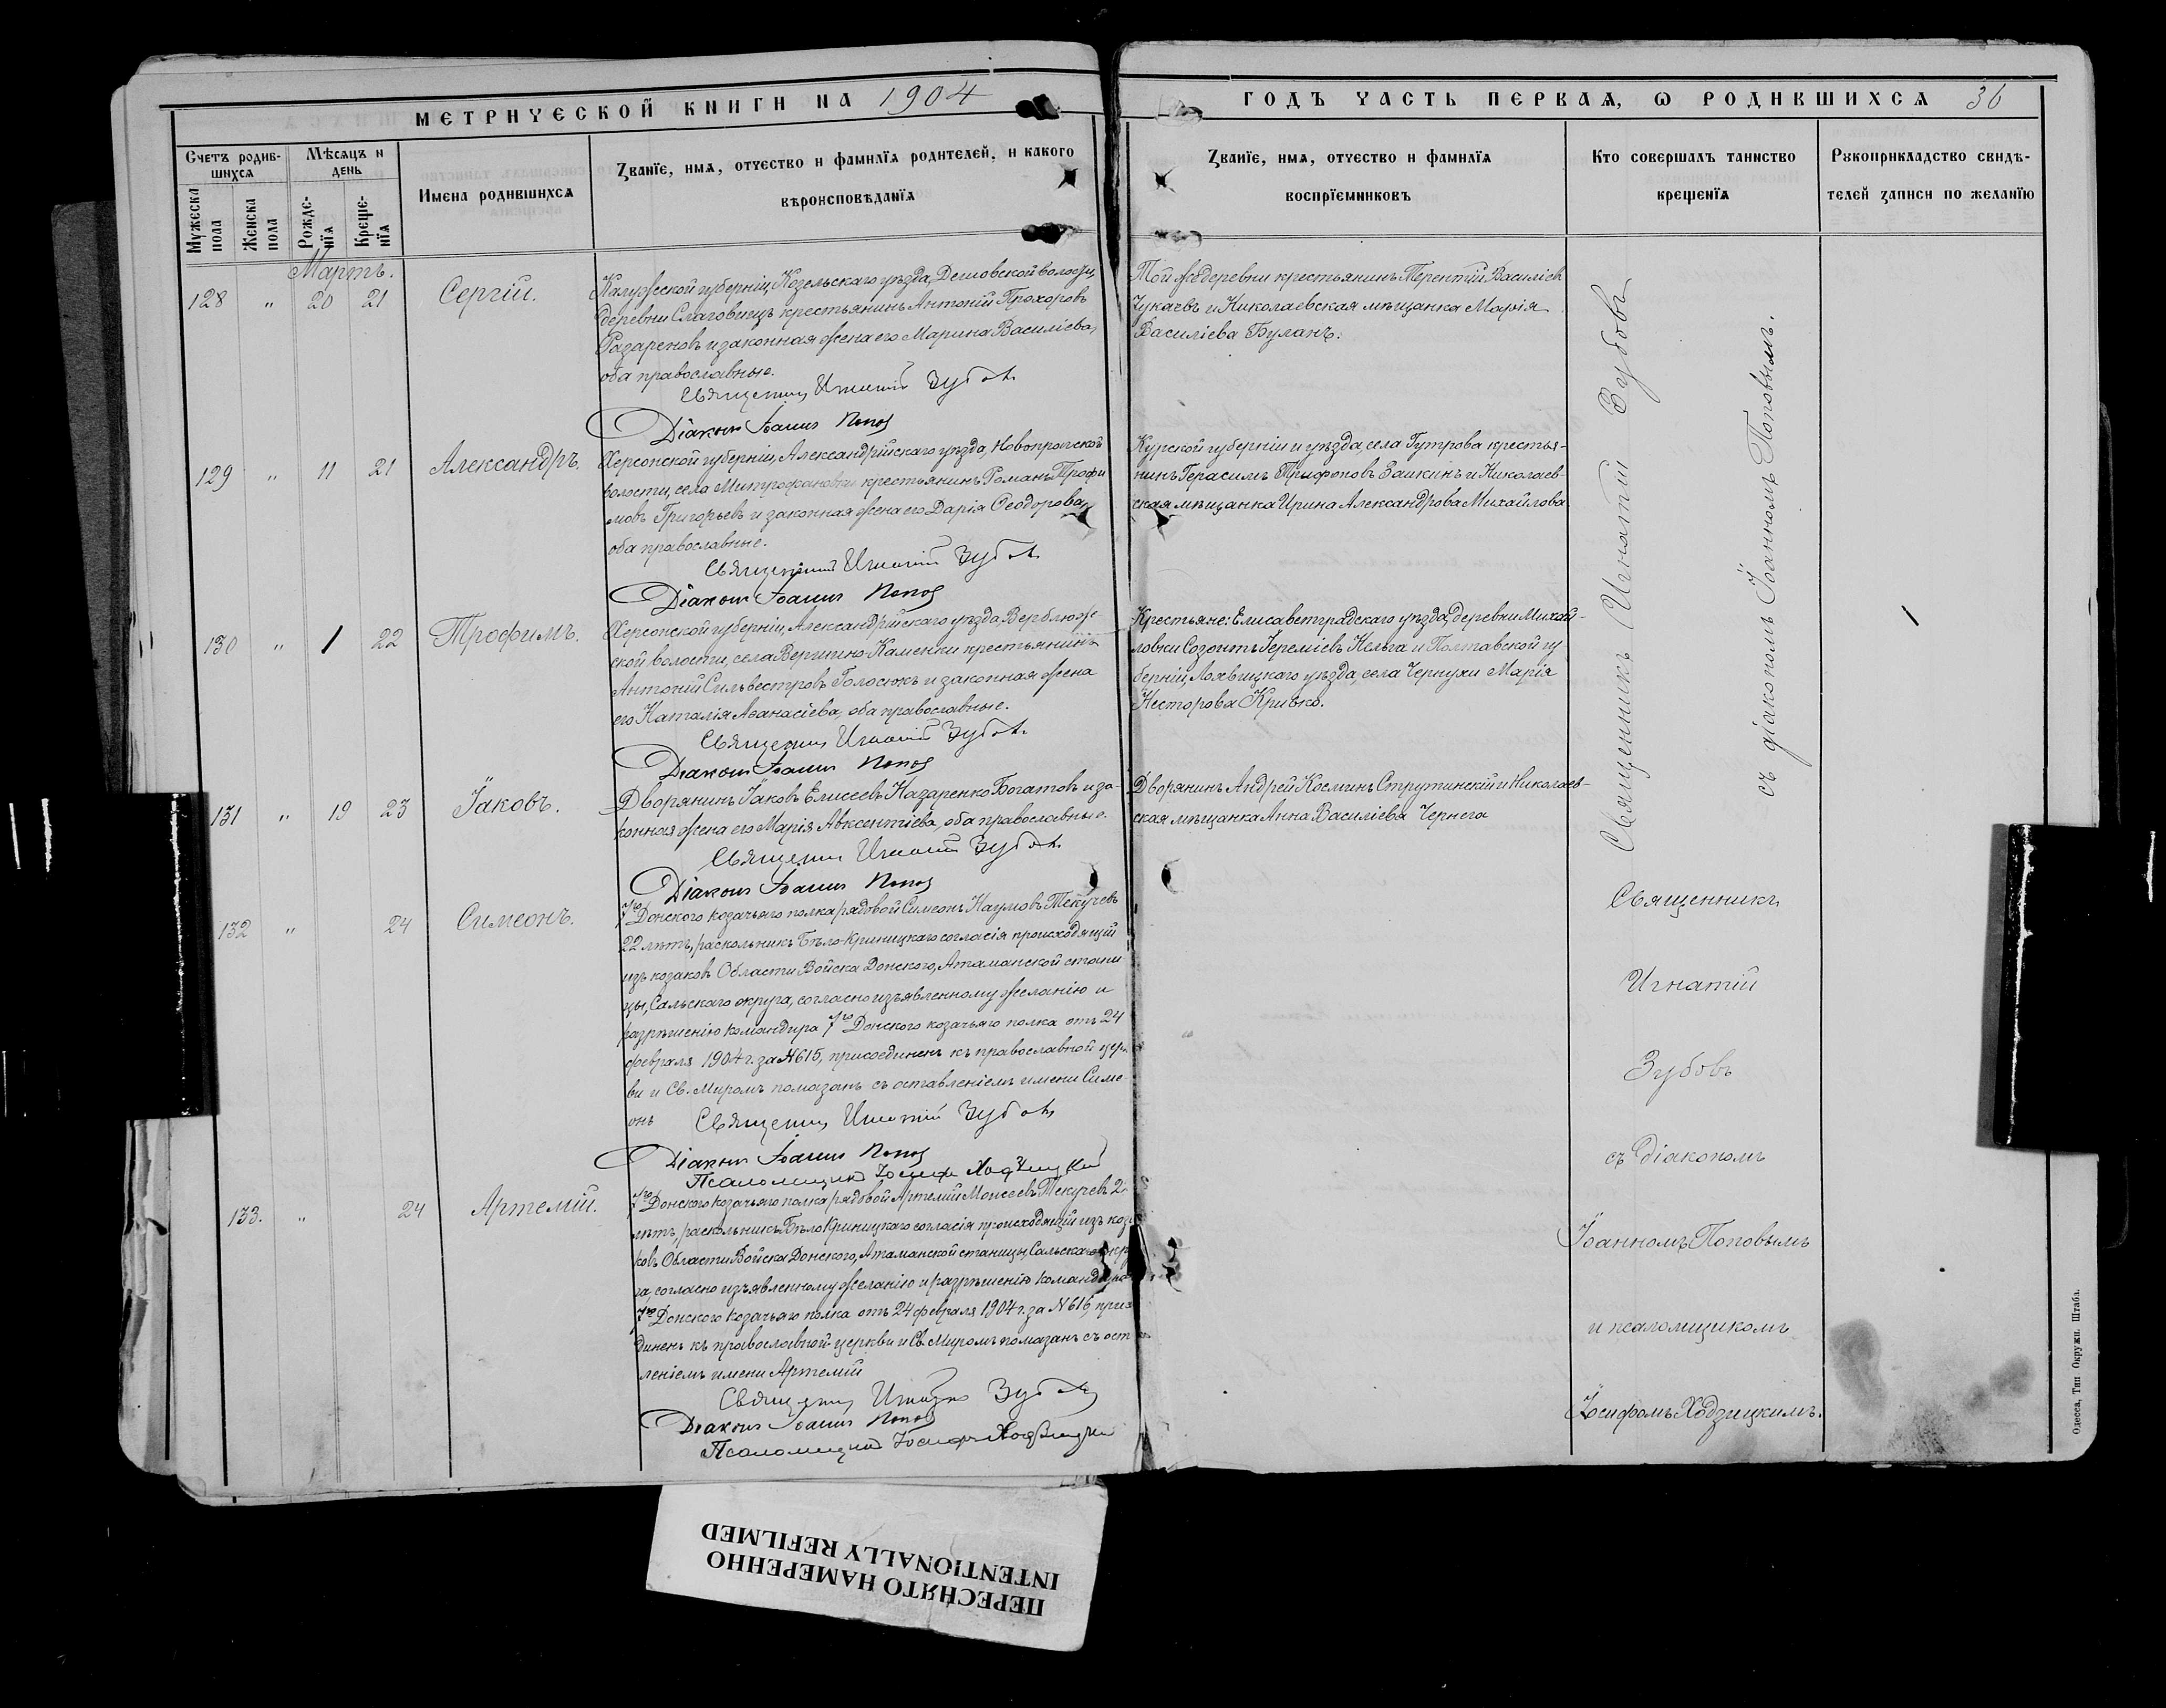 МЕТРИЧЕСКОЙ КНИГИ НА 1904
Счетъ родив-
шихся
Мѣсяцъ и
день
Мужеска
пола
Женска
пола
Рожде-
нїя
Креще-
нїя
Имена родившихся
Званїе, имя, отчество и фамилїя родителей, и какого
вѣроисповѣданїя
Мартъ.
128 " 20 21
Сергій.
Калужской губерніи, Козельскаго уѣзда, Дешовской волости,
деревни Слаговищъ крестьянинъ Антоній Прохоровъ
Разареновъ и законная жена его Марина Василіева,
оба православные.
Священникъ Игнатій Зубовъ
Діаконъ Іоаннъ Поповъ
129 " 11 21
Александръ.
Херсонской губерніи, Александрійскаго уѣзда, Новопражской
волости, села Митрофановки крестьянинъ Романъ Трофи
мовъ Григорьевъ и законная жена его Дарія Ѳеодорова,
оба православные.
Священникъ Игнатій Зубовъ
Діаконъ Іоаннъ Поповъ
130 " 1 22
Трофимъ.
Херсонской губерніи, Александрійскаго уѣзда, Верблюж-
ской волости, села Вершино-Каменки крестьянинъ
Антоній Сильвестровъ Голосюкъ и законная жена
его Наталія Аѳанасіева, оба православные.
Священникъ Игнатій Зубовъ
Діаконъ Іоаннъ Поповъ
131 " 19 23
Іаковъ.
Дворянинъ Іаковъ Елисеевъ Назаренко Богатовъ и за-
конная жена его Марія Авксентіева, оба православные.
Священникъ Игнатій Зубовъ
Діаконъ Іоаннъ Поповъ
132 " 24
Симеонъ.
7го Донского козачьяго полка рядовой Симеонъ Наумовъ Текучевъ
22 лѣтъ, раскольникъ Бѣло-Криницкаго согласія происходящій
изъ козаковъ Области Войска Донского, Атаманской стани
цы, Сальскаго округа, согласно изъявленному желанію и
разрѣшенію командира 7го Донского козачьяго полка отъ 24
февраля 1904 г. за N 615, присоединенъ къ православной церк
ви и Св. Миромъ помазанъ съ оставленіемъ имени Симе
онъ Священникъ Игнатій Зубовъ
Діаконъ Іоаннъ Поповъ
Псаломщикъ Іосифъ Ходзицкій
133. " 24
Артемій.
7го Донского козачьяго полка рядовой Артемій Моисеевъ Текучевъ 2
лѣтъ, раскольникъ Бѣло Криницкаго согласія происходящій изъ коза
ковъ Области Войска Донского, Атаманской станицы, Сальскаго окру
га, согласно изъявленному желанію и разрѣшенію командира
7го Донского козачьяго полка отъ 24 февраля 1904 г. за N 616, присо
диненъ къ православной церкви и Св. Миромъ помазанъ съ оста
леніемъ имени Артемій
Священникъ Игнатій Зубовъ
Діаконъ Іоаннъ Поповъ
Псаломщикъ Іосифъ Ходзицкій
ГОДЪ ЧАСТЬ ПЕРВАЯ, Ѡ РОДИВШИХСЯ 36
Званїе, имя, отчество и фамилїя
воспрїемниковъ
Кто совершалъ таинство
крещенїя
Рукоприкладство свидѣ-
телей записи по желанїю
Той же деревни крестьянинъ Терентій Василіев
Чукаевъ и Николаевская мѣщанка Марія
Василіева Буланъ.
Курской губерніи и уѣзда, села Гутрова крестья-
нинъ Герасимъ Трифоновъ Заикинъ и Николаев-
ская мѣщанка Ирина Александрова Михайлова.
Крестьяне: Елисаветградскаго уѣзда, деревни Михай-
ловки Созонтъ Іереміевъ Кельга и Полтавской гу
берніи, Лохвицкаго уѣзда, села Чернухи Марія
Несторова Кривко.
Дворянинъ Андрей Косминъ Струтинскій и Николаев-
ская мѣщанка Анна Василіева Чернега
Священникъ Игнатій Зубовъ
съ діакономъ Іоанномъ Поповымъ.
Священникъ
Игнатій
Зубовъ
съ діакономъ
Іоанномъ Поповымъ
и псаломщикомъ
Іосифомъ Ходзицкимъ.
Одесса, Тип Окружн. Штаба.
ПЕРЕСНЯТО НАМЕРЕННО
INTENTIONALLY REFILMED